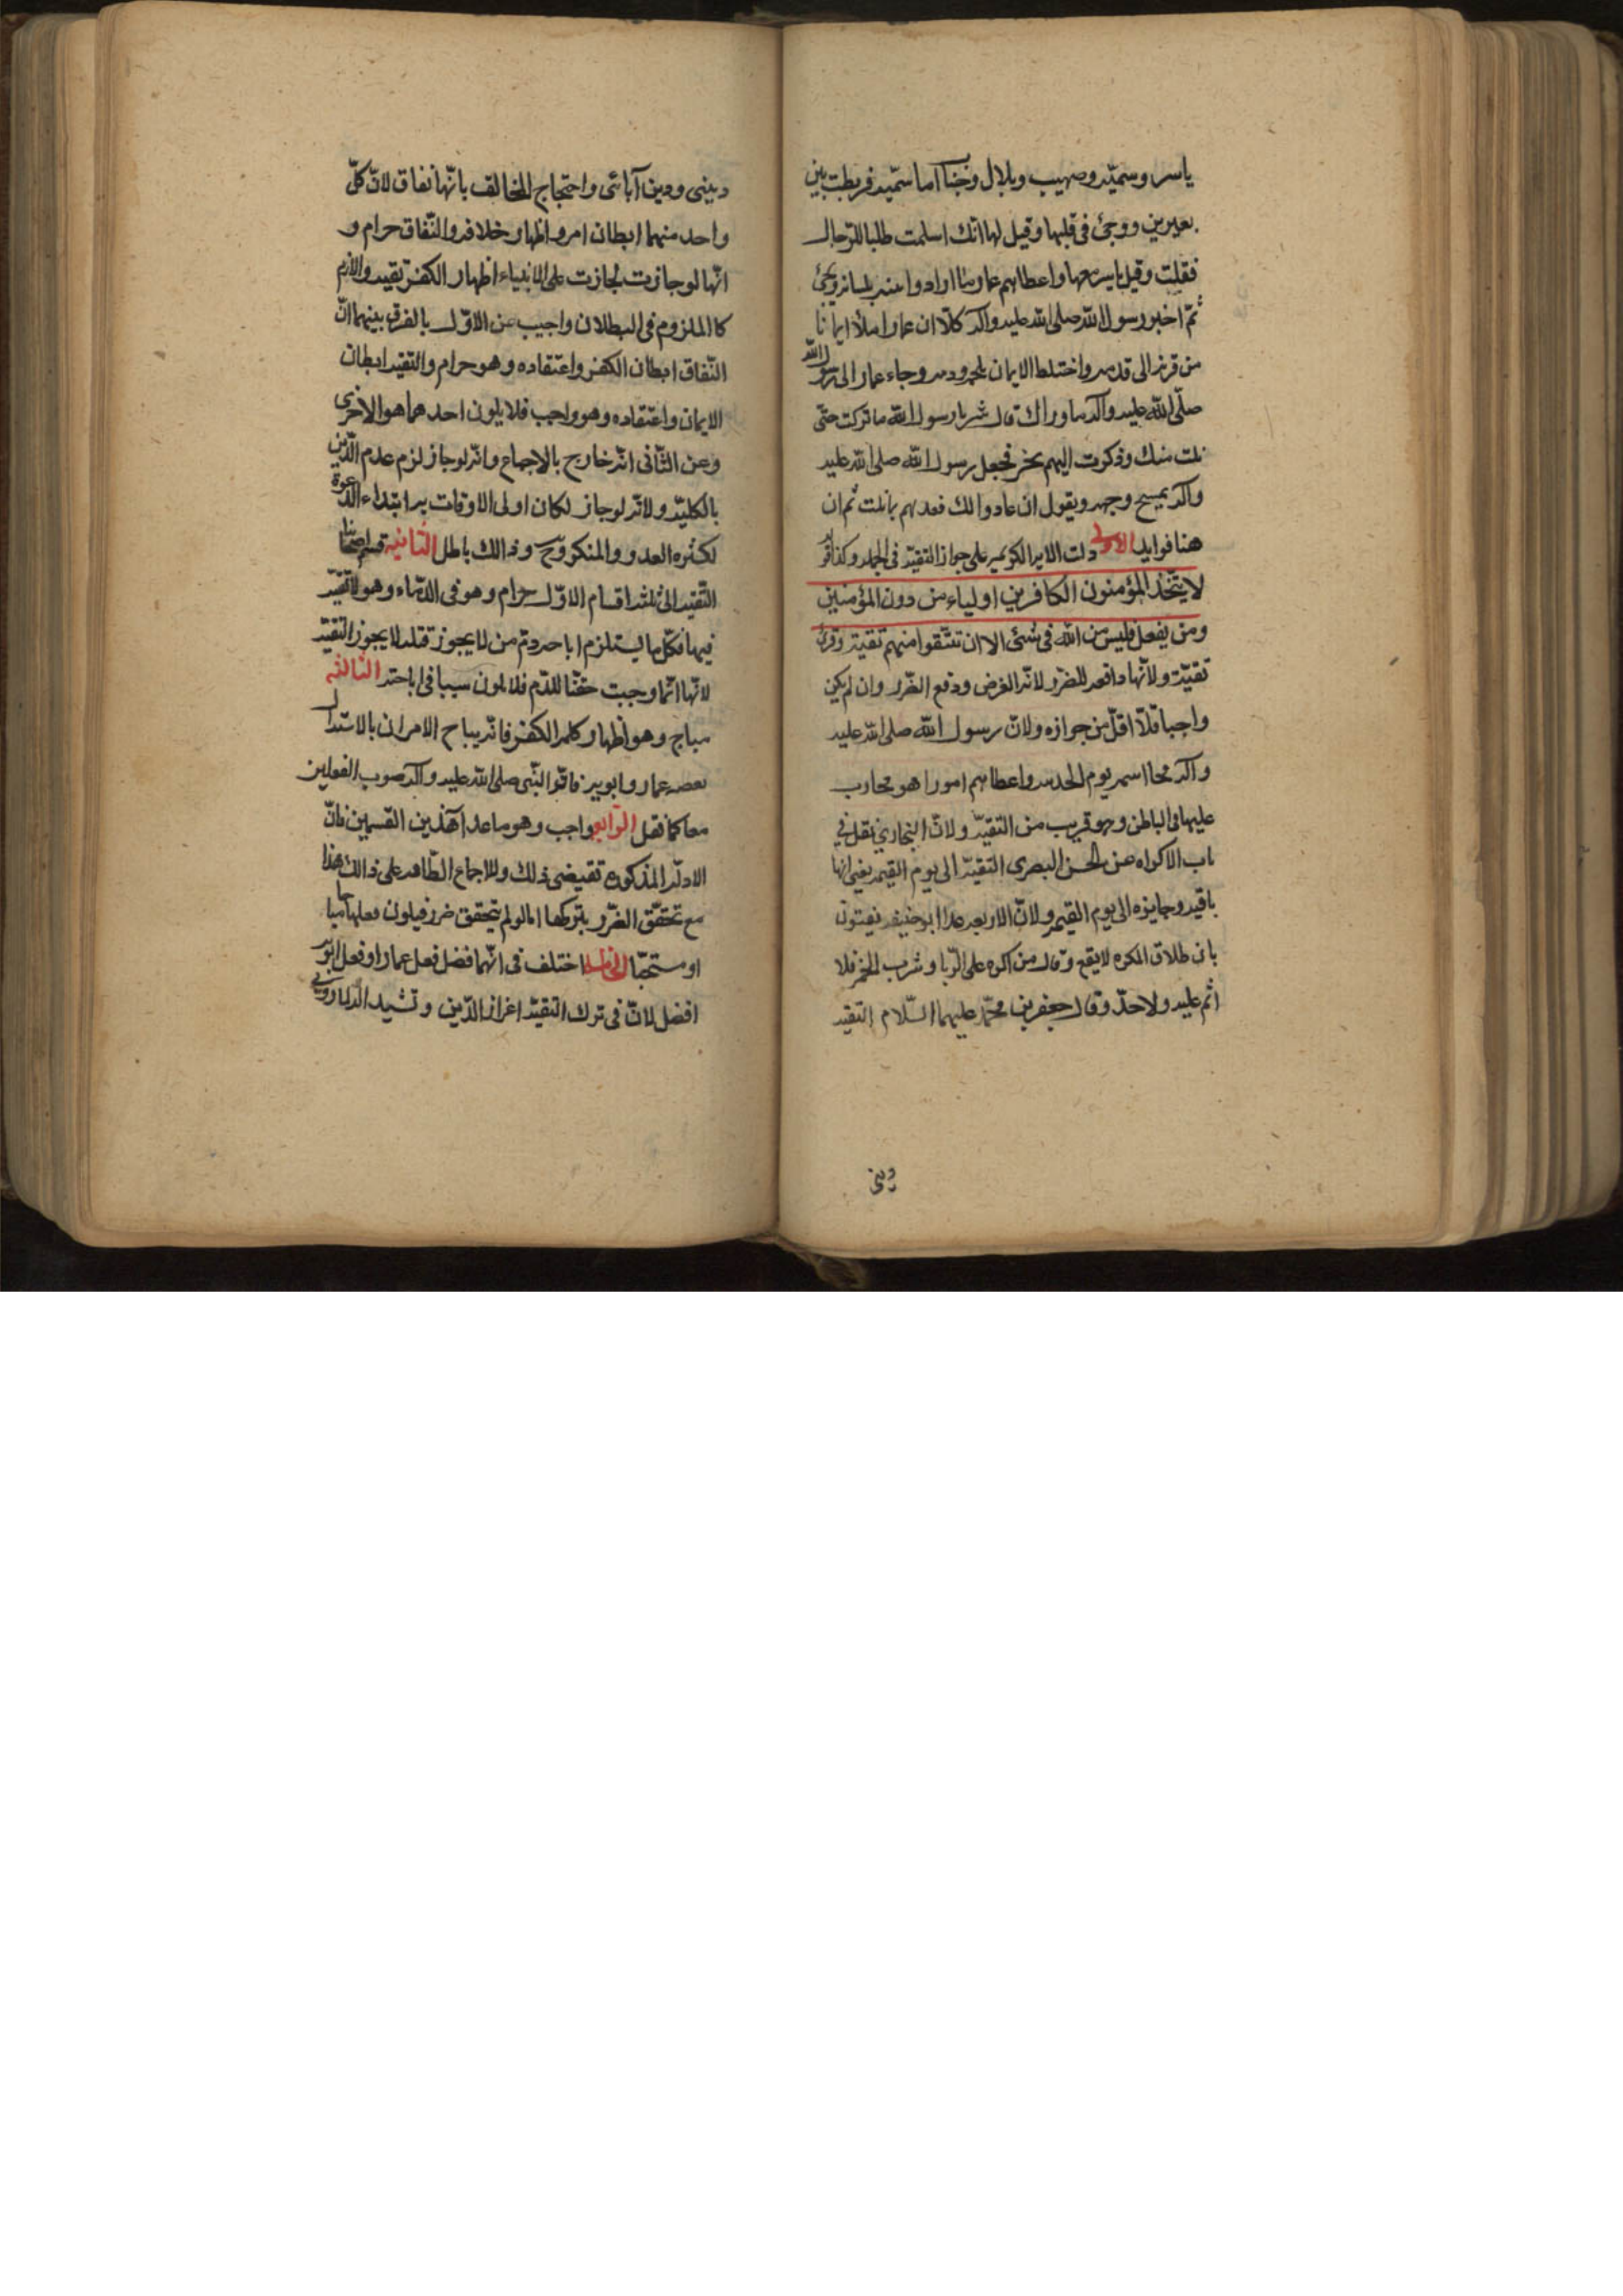 ياسر وسميّه وصهيب وبلال وخبّابا اما سميّه فربطت بين
بعيرين ووجئ فى قلبها وقيل لها انك اسلمت طلبا للرجال
فقتلت وقيل ياسر معها واعطاهم عمار ما ارادوا منه بلسانه
ثمّ اخبر رسول الله صلى الله عليه وآله كلّا ان عمارا ملأ ايمانا
من قرنه الى قدمه واختلط الايمان بلحمه ودمه وجاء عمار الى رسول الله
صلّى الله عليه وآله ما وراك قال شر يا رسول الله ما تركت حتّى
نلت منك وذكرت الهتهم بخير فجعل رسول الله صلى الله عليه
وآله يمسح وجهه ويقول ان عادوا لك فعد لهم بما قلت ثم ان
هنا فوايد الاولى دلت الايه الكريمه على جواز التقيّه فى الجمله وكذا قوله
لا يتّخذ المؤمنون الكافرين اولياء من دون المؤمنين
ومن يفعل فليس من الله فى شئى الا ان تتّقوا منهم تقية وقرئ
تقيّة ولانّها دافعه للضرر لانّه الفرض ودفع الضّرر وان لم يكن
واجبا فلا اقلّ من جوازه ولانّ رسول الله صلى الله عليه
وآله محا اسمه يوم الحديبيه واعطاهم امورا هو محارب
عليها فى الباطن وهو قريب من التقيّه ولانّ البخارى نقل فى
باب الاكراه عن الحسن البصرى التقيّه الى يوم القيمه يعنى انها
باقيه وجايزه الى يوم القيمه ولانّ الاربعه عدا ابو حنيفه يفتون
بان طلاق المكره لا يقع وقال من اكره على الرّبا وشرب الخمر فلا
اثم عليه ولا حدّ وقال جعفر بن محمّد عليهما السّلام التقيه
دينى
دينى ودين آبائى واحتجاج المخالف بانّها نفاق لانّ كلّ
واحد منهما ابطان امر واظهار خلافه والنّفاق حرام و
انّها لو جازت لجازت على الانبياء اظهار الكفر تقيه واللازم
كالملزوم فى البطلان واجيب عن الاوّل بالفرق بينهما انّ
النّفاق ابطان الكفر واعتقاده وهو حرام والتقيه ابطان
الايمان واعتقاده وهو واجب فلا يكون احدهما هو الاخرى
وعن الثّانى انّه خارج بالاجماع وانّه لو جاز لزم عدم الدّين
بالكليّه ولانّه لو جاز لكان اولى الاوقات به ابتداء الدّعوة
لكثره العدو والمنكر وذالك باطل الثانيه قسم اصحابنا
التّقيه الى ثلثه اقسام الاوّل حرام وهو فى الدّماء وهو لا تقيّه
فيها فكلّ ما يستلزم اباحه دم من لا يجوز قتله لا يجوز التقيّه
لانّها انّما وجبت حقنا للدّم فلا يكون سببا فى اباحته الثالثه
مباح وهو اظهار كلمه الكفر فانّه يباح الامران بالاستدلال
بقصه عمار وابويه فانّ النّبى صلى الله عليه وآله صوب الفعلين
معا كما نقل الرّابع واجب وهو ما عدا هذين القسمين فانّ
الادلّه المذكوره تقتضى ذلك وللاجماع الظّاهر على ذالك هذا
مع تحقّق الضّرر بتركها امالو لم يتحقق ضرر فيكون فعلها مباحا
او مستحبّا الخامسه اختلف فى انّهما افضل فعل عمار او فعل ابويه
افضل لانّ فى ترك التقيّه اعزاز الدّين وتشييد